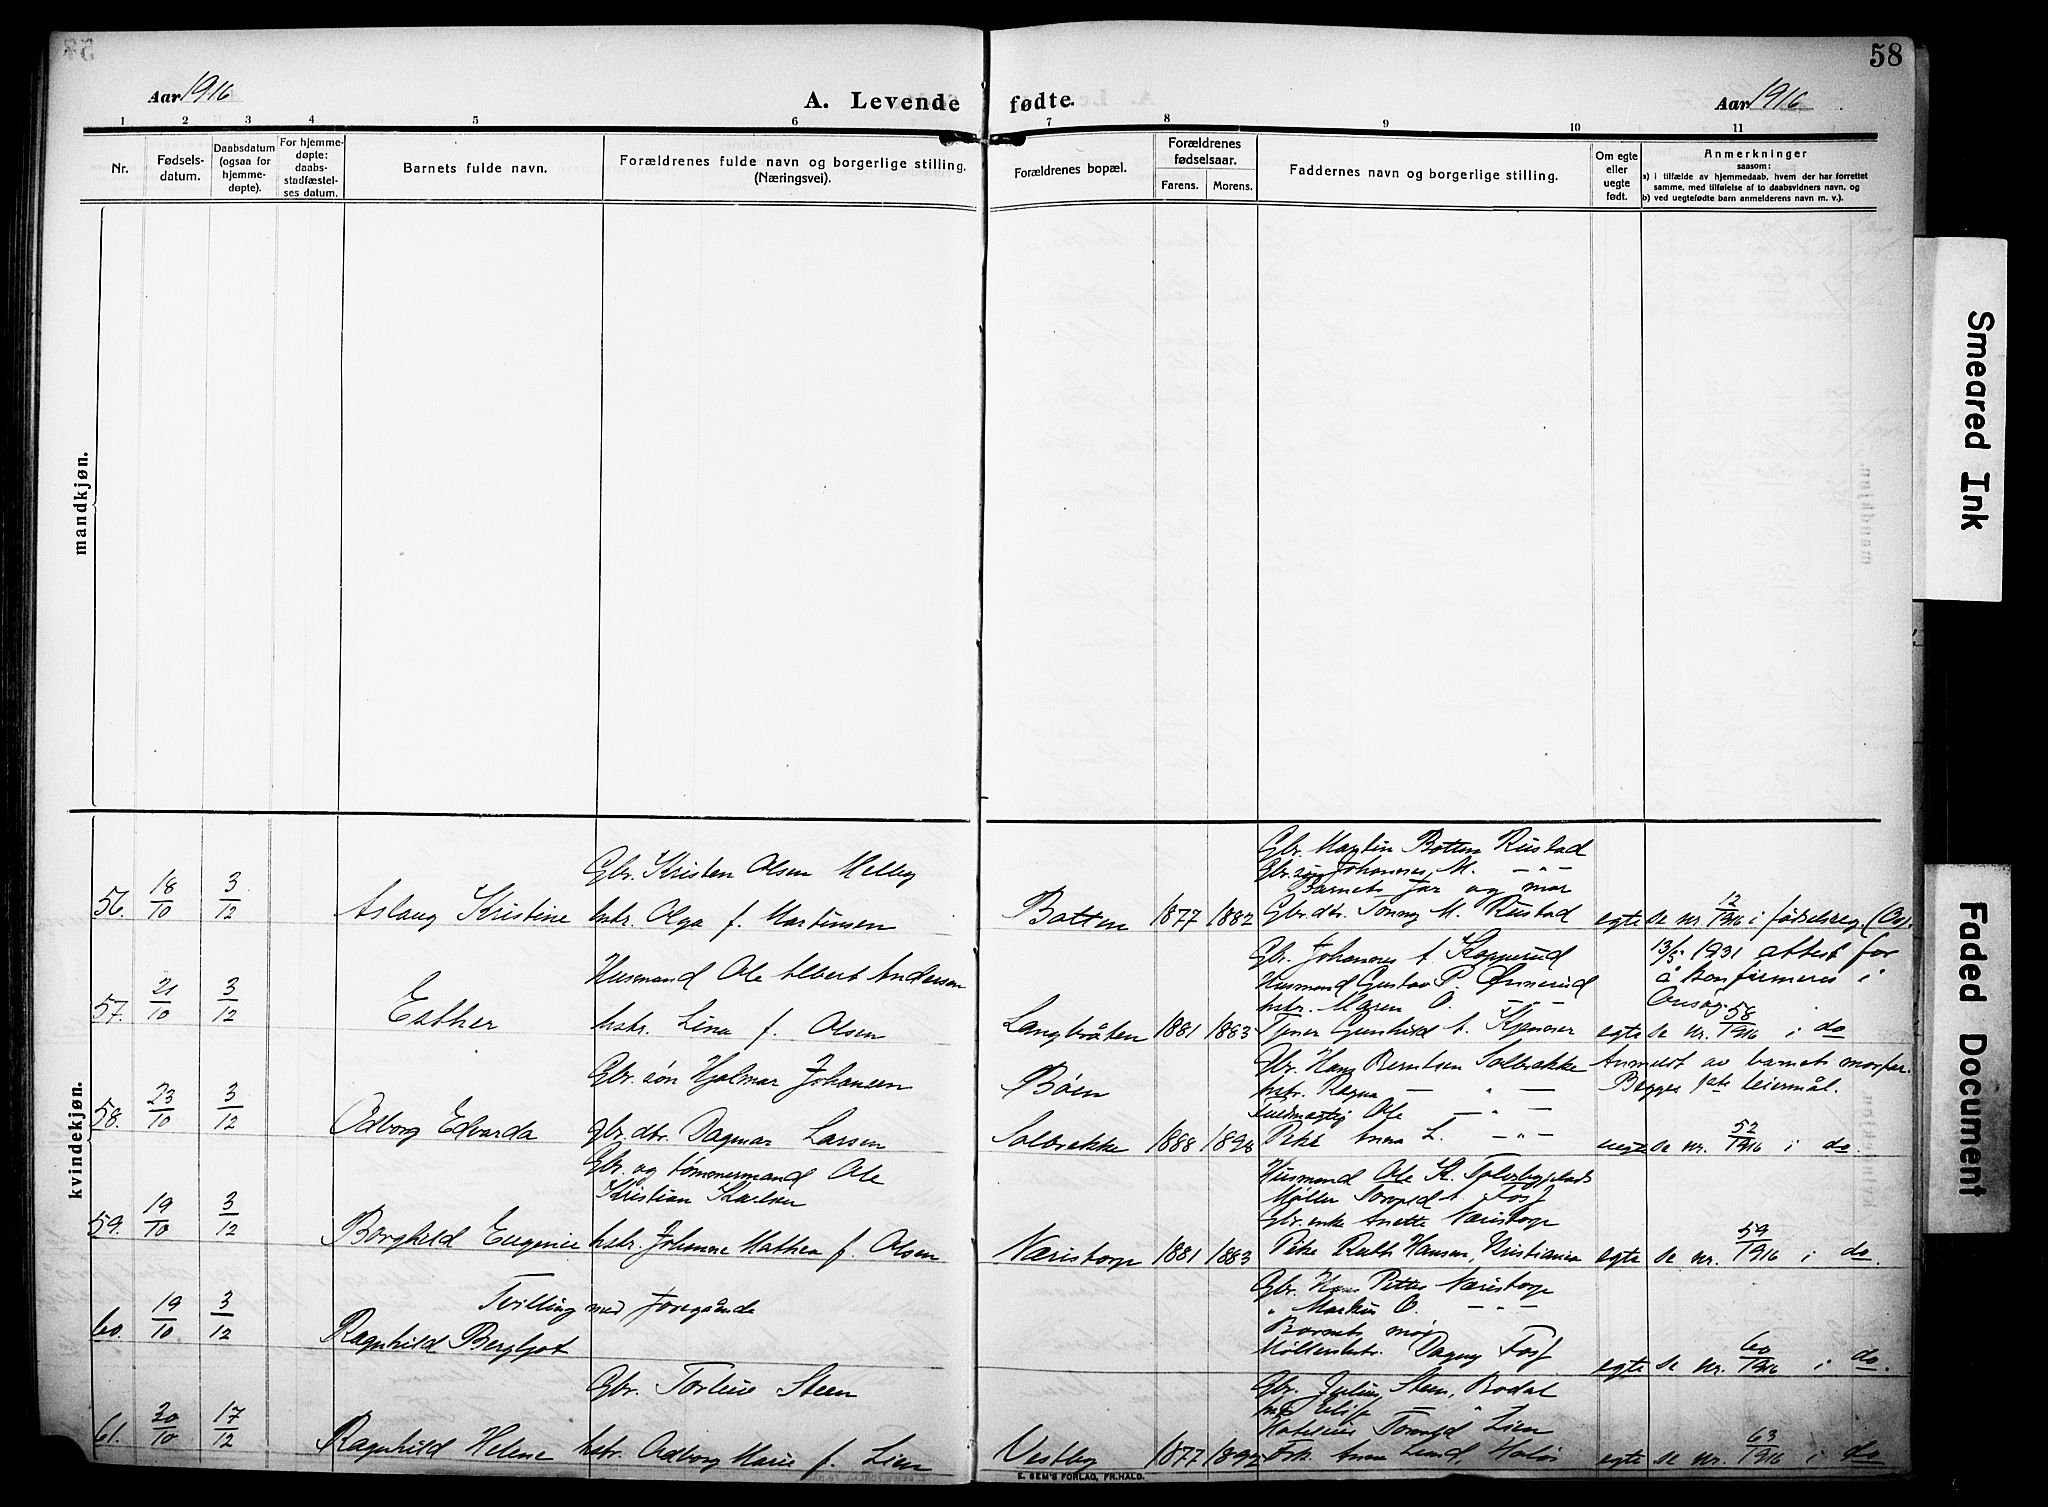 58
Aar 1916
A. Levende fødte.
Aar 1916
1 2 3 4 5 6 7 8 9 10 11
Nr.
Fødsels-
datum.
Daabsdatum
(ogsaa for
hjemme-
døpte).
For hjemme-
døpte:
daabs-
stadfæstel-
ses datum.
Barnets fulde navn.
Forældrenes fulde navn og borgerlige stilling.
(Næringsvei).
Forældrenes bopæl.
Forældrenes
fødselsaar.
Farens. Morens.
Faddernes navn og borgerlige stilling.
Om egte
eller
uegte
født.
Anmerkninger
saasom:
a) i tilfælde av hjemmedaab, hvem der har forrettet
samme, med tilføielse af to daabsvidners navn, og
b) ved uegtefødte barn anmelderens navn m. v.).
mandkjøn.
kvindekjøn.
56. 18/10 3/12 Aslaug Kristine
Gbr. Kristen Olsen Melby
hstr. Olga f. Martinsen
Botten 1877 1882
Gbr. Martin Botten Rustad
Gbr. søn Johannes M. — " —
Barnets far og mor
Gbr. dtr. Tonny M. Rustad
egte se nr. 12/1916 i fødselsreg. (Os).
57. 21/10 3/12 Esther
Husmand Ole Albert Andersen
hstr. Lina f. Olsen
Langbråten 1881 1883
Gbr. Johannes A. Kopperud
Husmand Gustav P. Ørmerud
hstr. Maren O. — " —
Tjener Gunhild A. Kjenner
13/5 1931 attest for
å konfirmeres i
Onsøy.
egte se nr. 58/1916 i do
58. 23/10 3/12 Odborg Edvarda
Gbr. søn Hjalmar Johansen
gbr. dtr. Dagmar Larsen
Bøen
Solbrekke 1888 1898
Gbr. Hans Berntsen Solbrekke
hstr. Ragna — " —
Fuldmægtig Ole — " —
Pike Anna L. — " —
Anmeldt av barnets morfar.
Begges 1ste leiermål.
uegte se nr. 52/1916 i do.
59. 19/10 3/12 Borghild Eugenie
Gbr. og tømmermand Ole
Kristian Karlsen
hstr. Johanne Mathea f. Olsen
Næristorp 1881 1883
Husmand Ole K.
Møller Torvald A. Foss
Gbr. enke Anette Næristorp
Pike Ruth Hansen, Kristiania
egte se nr. 59/1916 i do.
60. 19/10 3/12
Tvilling med foregående
Ragnhild Bergljot
Gbr. Hans Petter Næristorp
" Markus O. — " —
Barnets mor
Møllerhstr. Dagny Foss
egte se nr. 60/1916 i do.
61. 30/10 17/12 Ragnhild Helene
Gbr. Torleif Steen
hstr. Odborg Marie f. Lien
Vestby 1877 1892
Gbr. Julius Steen, Bodal
Torvald Lien
Frk. Anna Lund,
egte se nr. 63/1916 i do
E. SEM'S FORLAG, FR.HALD.
Smeared Ink
Faded Document